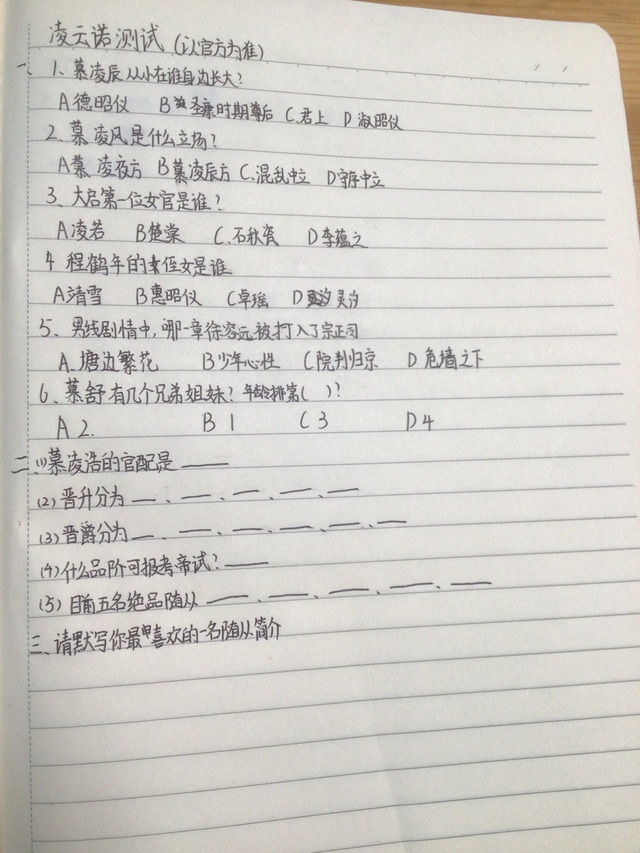 凌云诺测试(以官方为准)
一、1、慕凌辰从小在谁身边长大?
A德昭仪 B圣康时期尊后 C.君上 D淑昭仪
2、慕凌风是什么立场?
A慕凌夜方 B慕凌辰方 C.混乱中立 D守序中立
3、大启第一位女官是谁?
A凌若 B楚棠 C.石秋瓷 D李蕴之
4 程鹤年的侄女是谁
A靖雪 B惠昭仪 C卓瑶 D灵汐
5、男线剧情中,哪一章徐容远被打入了宗正司
A.塘边繁花 B少年心性 C院判归京 D危墙之下
6、慕舒有几个兄弟姐妹?年龄排第( )?
A 2. B 1 C 3 D 4
二(1)慕凌浩的官配是——
(2)晋升分为—、—、—、—、—
(3)晋爵分为—、—、—、—、—、—
(4)什么品阶可报考帝试?——
(5)目前五名绝品随从—、—、—、—、—
三、请默写你最喜欢的一名随从简介